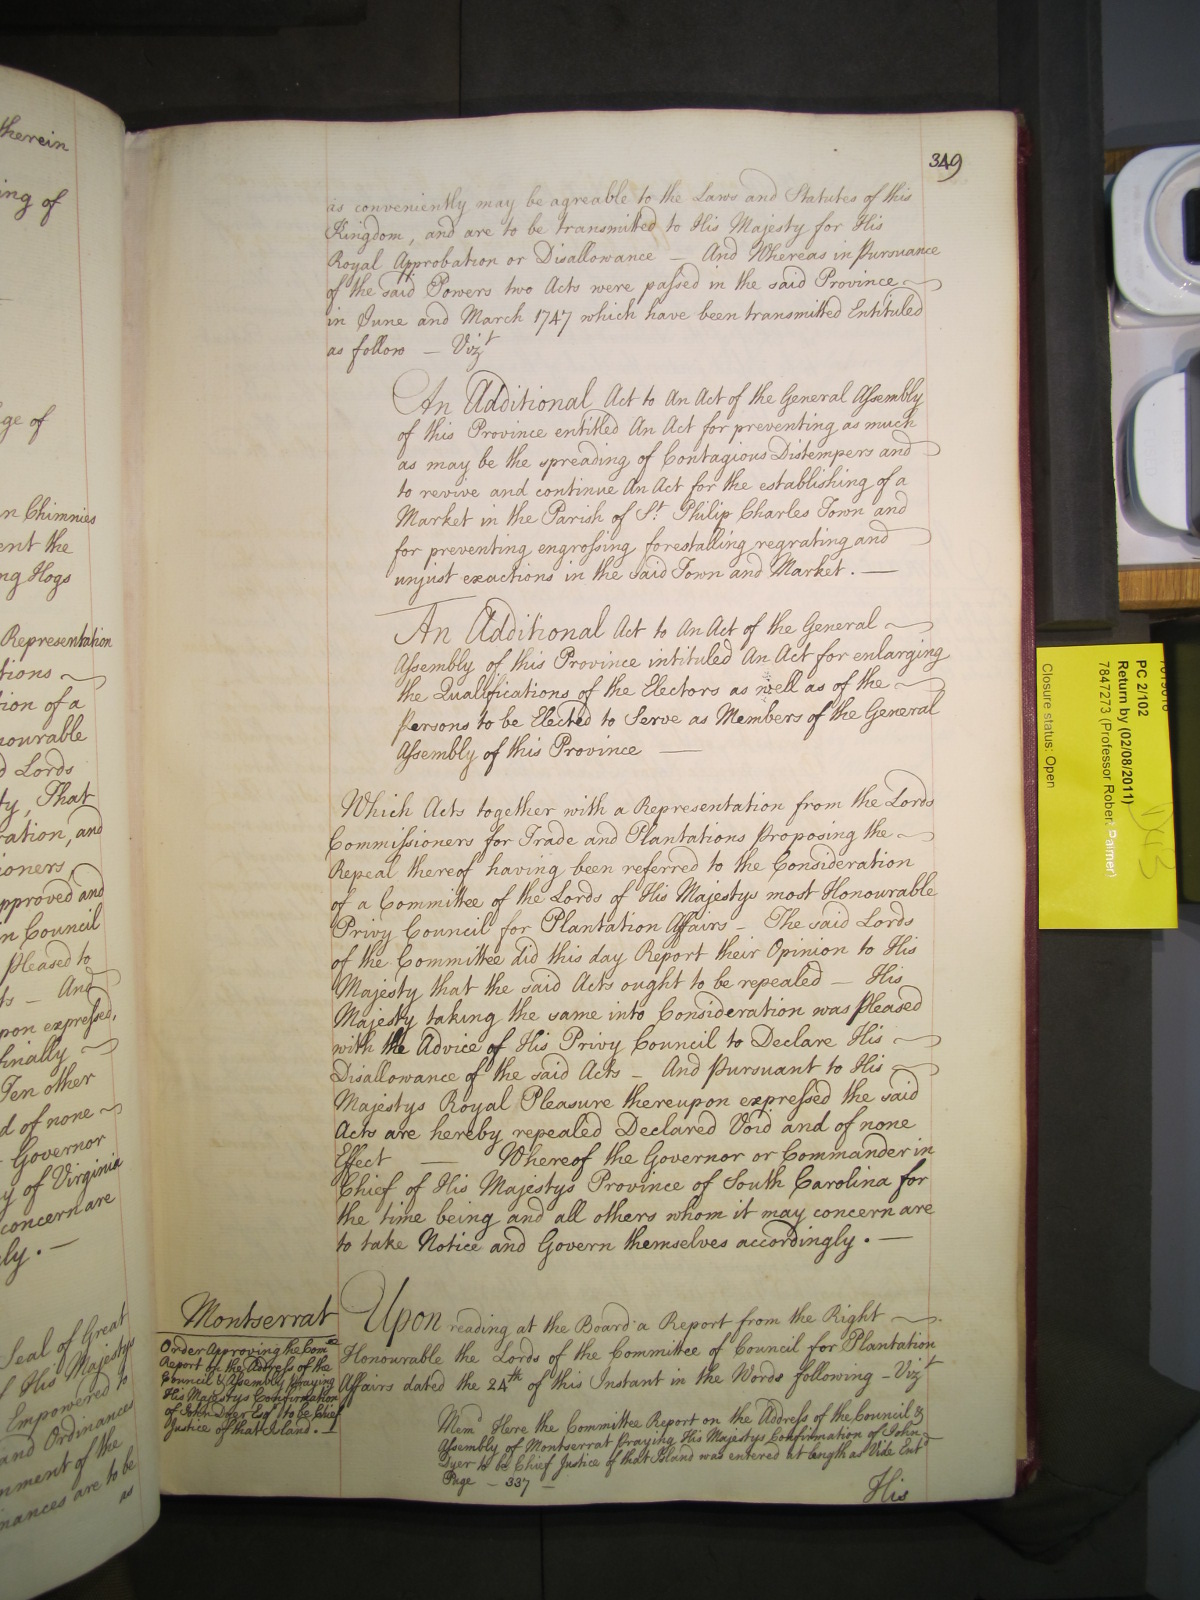 therein
ing of
ge of
n Chimnies
ent the
ng Hogs
Representation
tions
ion of a
nourable
d Lords
ty, That
ration, and
ioners,
pproved and
n Council
pleased to
ts — And
pon expressed,
finally
Ten other
d of none
Governor
y of Virginia
concern are
ly. —
Seal of Great
f His Majestys
Empowered to
and Ordinances
nment of the
nances are to be
as
349
as conveniently may be agreable to the Laws and Statutes of this
Kingdom, and are to be transmitted to His Majesty for His
Royal Approbation or Disallowance — And Whereas in Pursuance
of the said Powers two Acts were passed in the said Province
in June and March 1747 which have been transmitted Entituled
as follow — Vizt
An Additional Act to An Act of the General Assembly
of this Province entitled An Act for preventing as much
as may be the spreading of Contagious Distempers and
to revive and continue An Act for the establishing of a
Market in the Parish of St. Philip Charles Town and
for preventing engrossing forestalling regrating and
unjust exactions in the said Town and Market. —
An Additional Act to An Act of the General
Assembly of this Province intituled An Act for enlarging
the Qualifications of the Electors as well as of the
Persons to be Elected to Serve as Members of the General
Assembly of this Province —
Which Acts together with a Representation from the Lords
Commissioners for Trade and Plantations proposing the
Repeal thereof having been referred to the Consideration
of a Committee of the Lords of His Majestys most Honourable
Privy Council for Plantation Affairs — The said Lords
of the Committee did this day Report their Opinion to His
Majesty that the said Acts ought to be repealed — His
Majesty taking the same into Consideration was pleased
with the Advice of His Privy Council to Declare His
Disallowance of the said Acts — And pursuant to His
Majestys Royal Pleasure thereupon expressed the said
Acts are hereby repealed Declared Void and of none
Effect — Whereof the Governor or Commander in
Chief of His Majestys Province of South Carolina for
the time being and all others whom it may concern are
to take Notice and Govern themselves accordingly. —
Montserrat
Order Approving the Comee
Report of the Address of the
Council & Assembly praying
His Majestys Confirmation
of John Dyer Esqr. to be Chief
Justice of that Island. —
Upon reading at the Board a Report from the Right
Honourable the Lords of the Committee of Council for Plantation
Affairs dated the 24th of this Instant in the Words following — Vizt
Memd Here the Committee Report on the Address of the Council &
Assembly of Montserrat Praying His Majestys Confirmation of John
Dyer to be Chief Justice of that Island was entered at length as Vide Entd
Page — 337 —
His
PC 2/102
Return by (02/08/2011)
7847273 (Professor Robert Palmer)
Closure status: Open